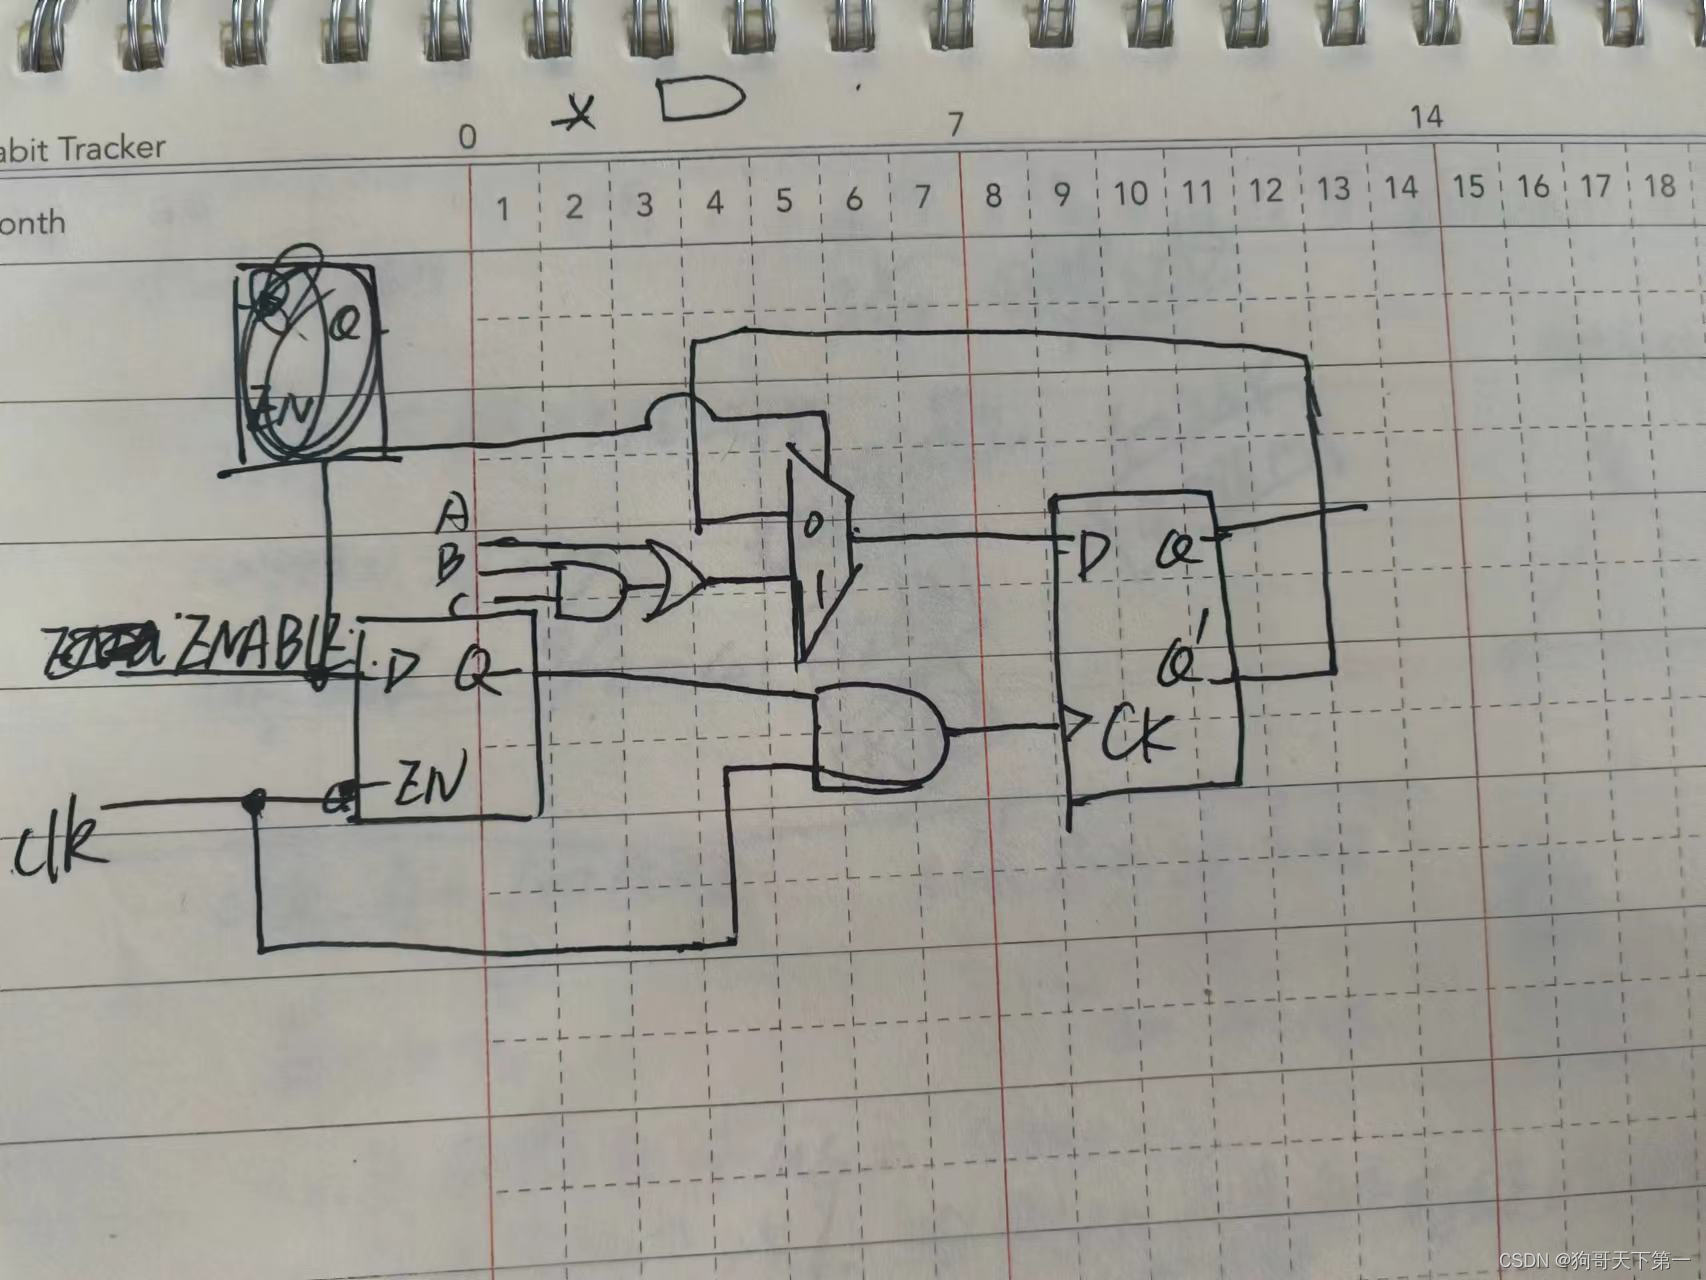 0 7 14
abit Tracker
onth
1 2 3 4 5 6 7 8 9 10 11 12 13 14 15 16 17 18
Q
EN
A
B
C
0
1
D Q
Q'
CK
ENABLE
D Q
EN
clk
CSDN @狗哥天下第一